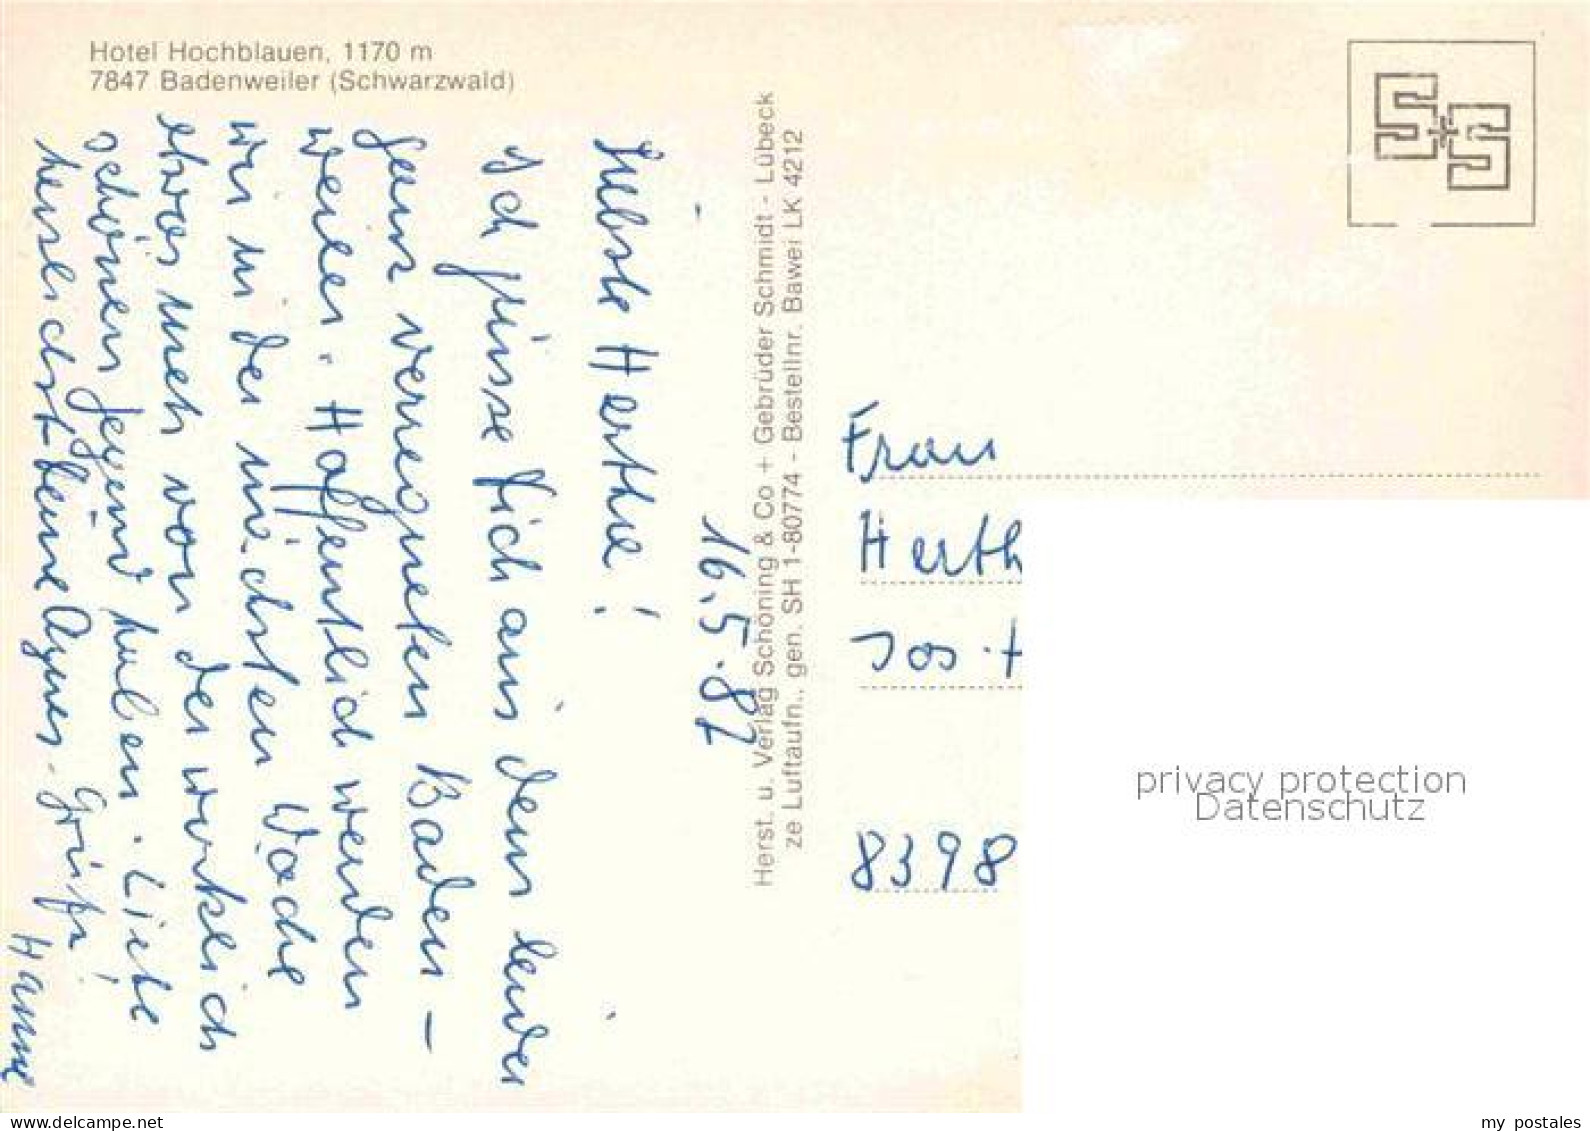 Hotel Hochblauen, 1170 m
7847 Badenweiler (Schwarzwald)
16.5.82
Liebste Herthe!
Ich grüsse Dich aus dem leider
ganz verregneten Baden-
weiler. Hoffentlich werden
wir in der nächsten Woche
etwas mehr von der wirklich
schönen Gegend haben. Liebe
herzlichst Deine Agnes. Grüße!
Hanne
Herst. u. Verlag Schöning & Co + Gebrüder Schmidt - Lübeck
ze Luftaufn., gen. SH 1-80774 - Bestellnr. Bawei LK 4212
S+S
Frau
Herth
8398
privacy protection
Datenschutz
delcampe.net
my_postales